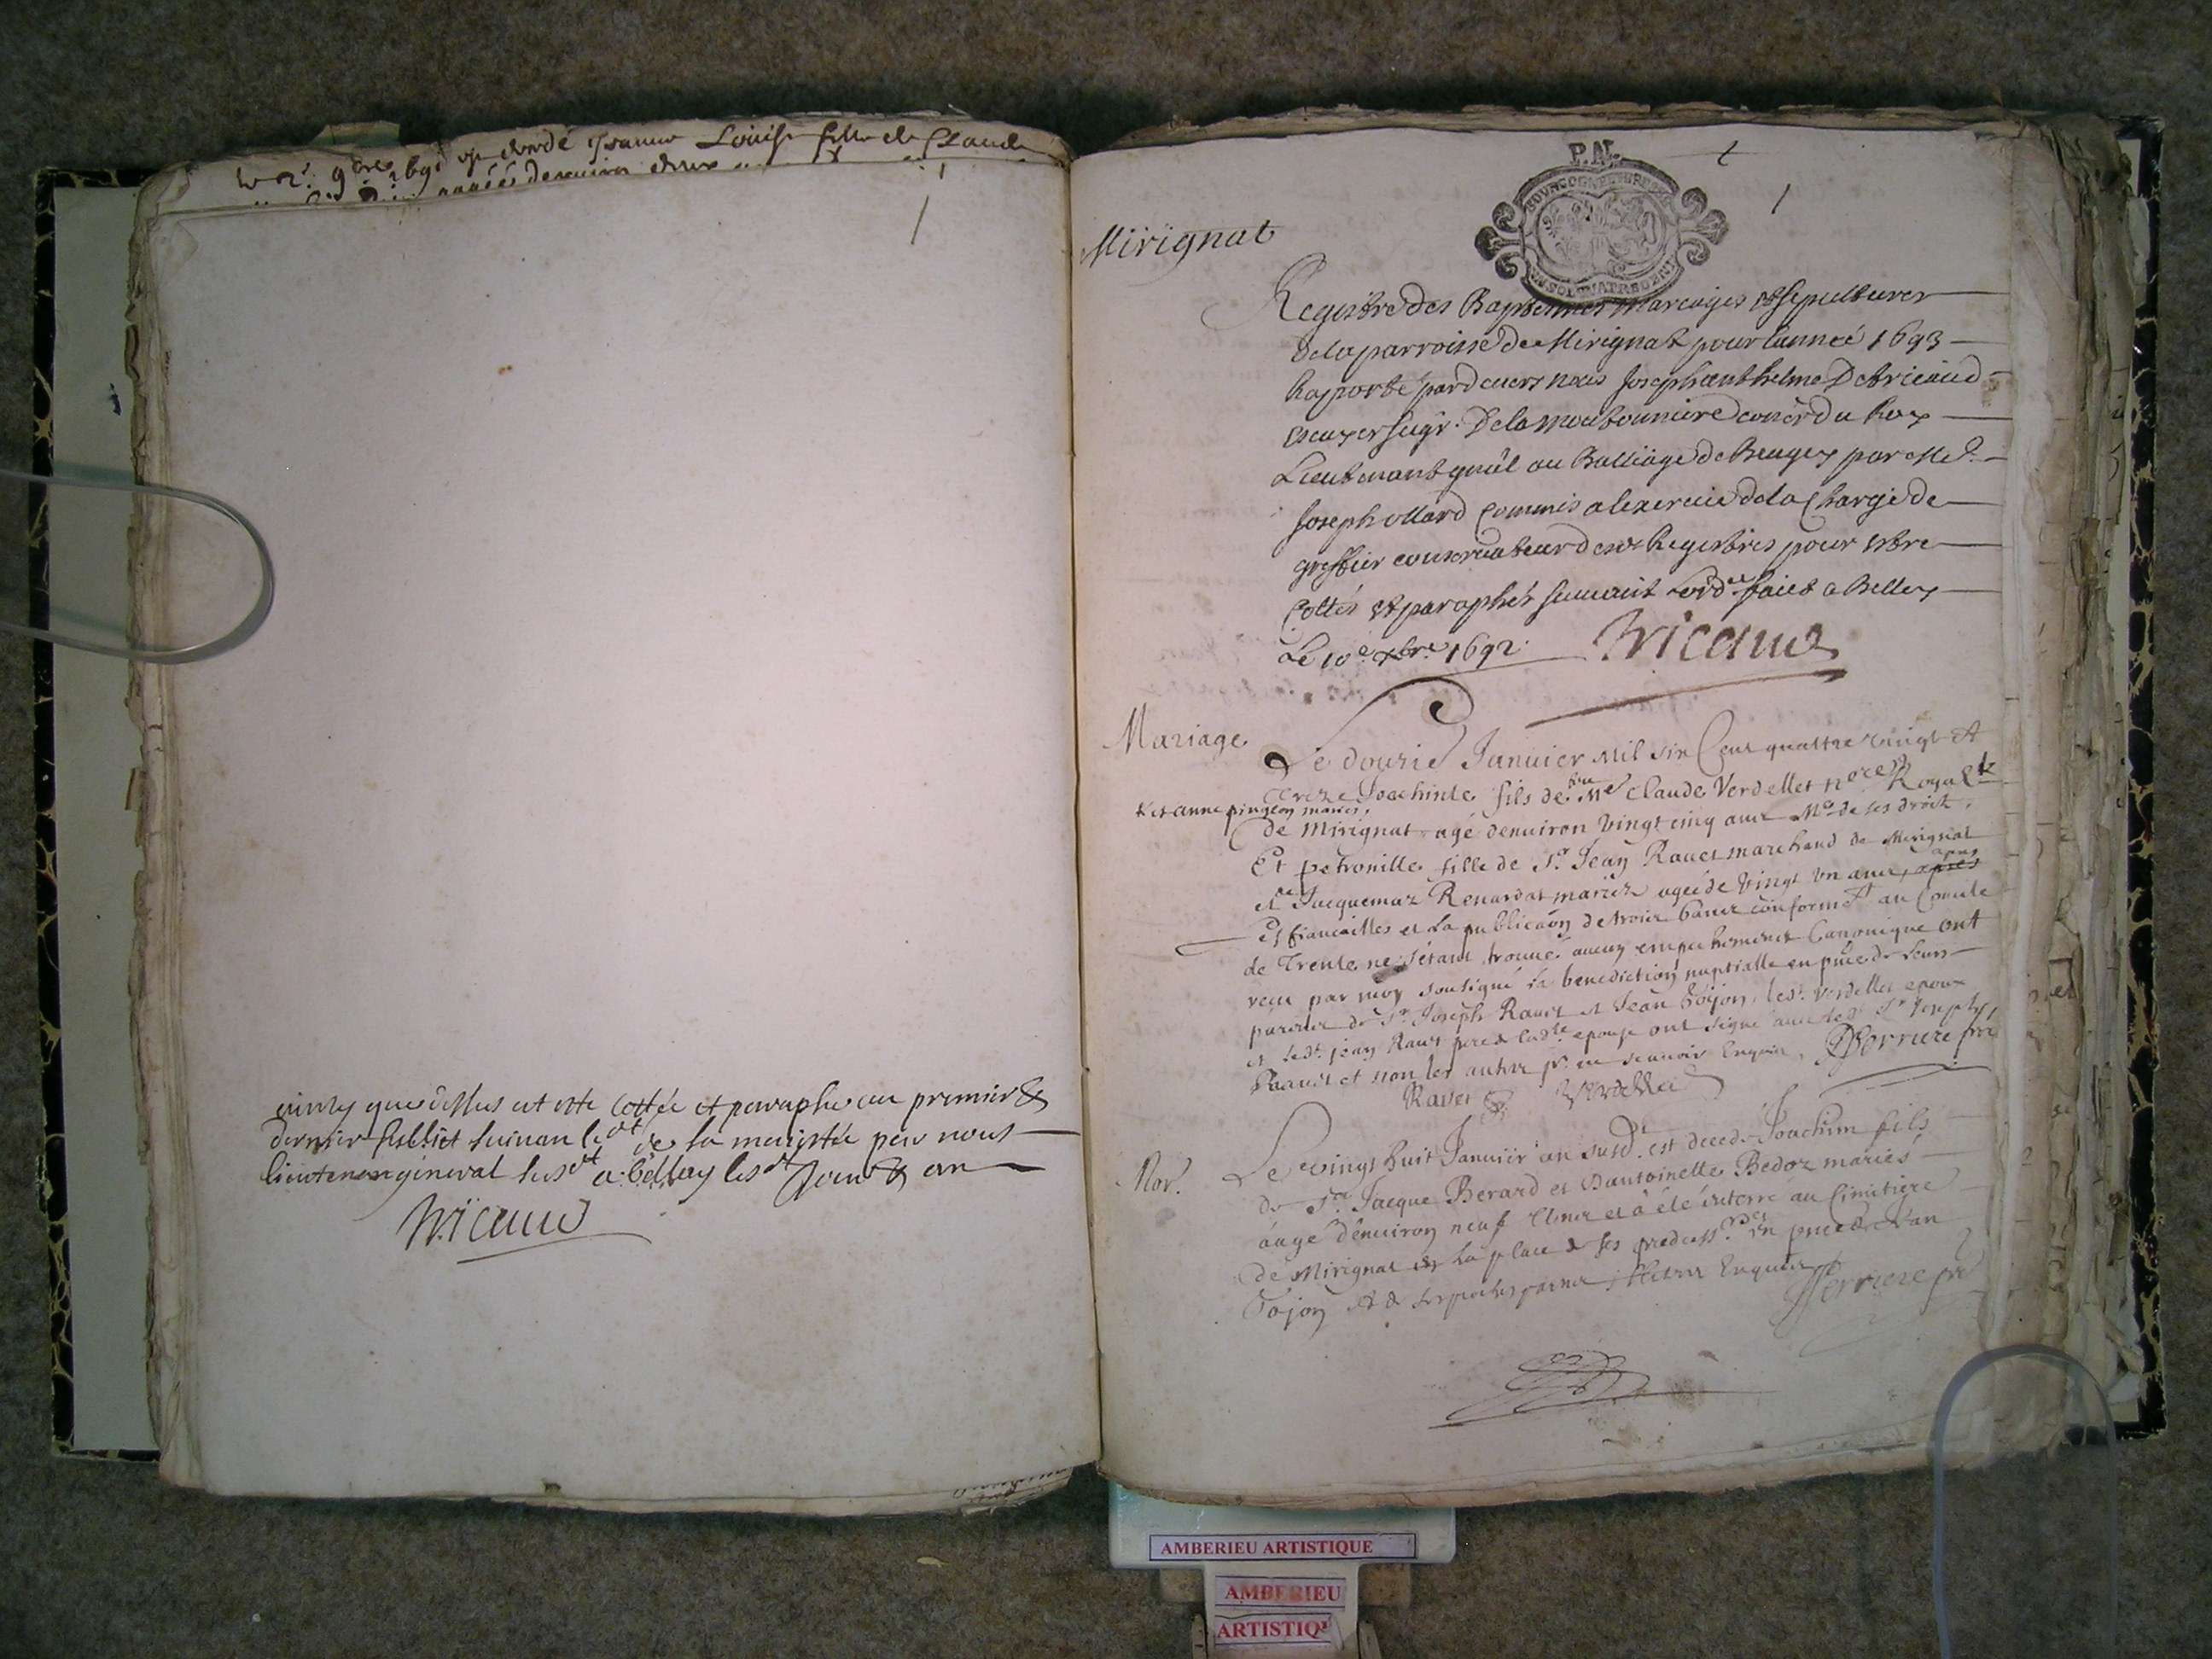 Louise fille de Claude
ainsy que dessus est este cottée et paraphé au premier &
dernier feuillet suivan led.t de sa majesté par nous
lieutenan general susd.t a bellay lesd.t Jour & an
Tricaud
P.N.
1
Mirignat
Registre des Baptesmes Mariages et sepultures
de la parroisse de Mirignat pour lannée 1693
Raporté pardevers nous Joseph anthelme De tricaud
escuyer seigr. De la moutonniere coner du Roy
Lieutenant gnal au Balliage de Beugey par Me
Joseph ollard commis a lexercice de la Charge de
greffier conservateur desd. Registres pour estre
Cottés et paraphés suivant faict a Belley
Le 10e xbre 1692. Tricaud
Mariage
Le douzie Janvier Mil six Cens quattre vingt et
treize Joachin fils de feu Me Claude Verdellet nore Royal
et anne pingeon mariés
de Mirignat agé denviron vingt cinq ans Me de ses droits,
Et petronille fille de Sr. Jean Ravet marchand de Mirignat
et Jacquemaz Renardat mariez agée de vingt un ans, apres apres
les fiancailles et la publicaon de trois bans conformet au Concile
de Trente ne sétant trouvé aucun empechement Canonique ont
receu par moy sousigné la benediction nuptialle en pnce de leurs
parents de Sr. Joseph Ravet et Jean Goyon, led. Verdellet epoux
et led. jean Ravet pere de lad.te epouse ont signé avec led. Sr Joseph
Ravet et non les autres pr. ne scavoir Enquis,
Ravet Verdellet
Mor.
Le vingt huit Janvier an susd. est decedé Joachim fils
de Sr. Jacque Berard et Dantoinette Bedoz mariés
áagé dénviron neuf et à été enterré au Cimitiere
de Mirignat en la place de ses predecessrs. En pnce de
Gojon et de
AMBERIEU ARTISTIQUE
AMBERIEU
ARTISTIQ